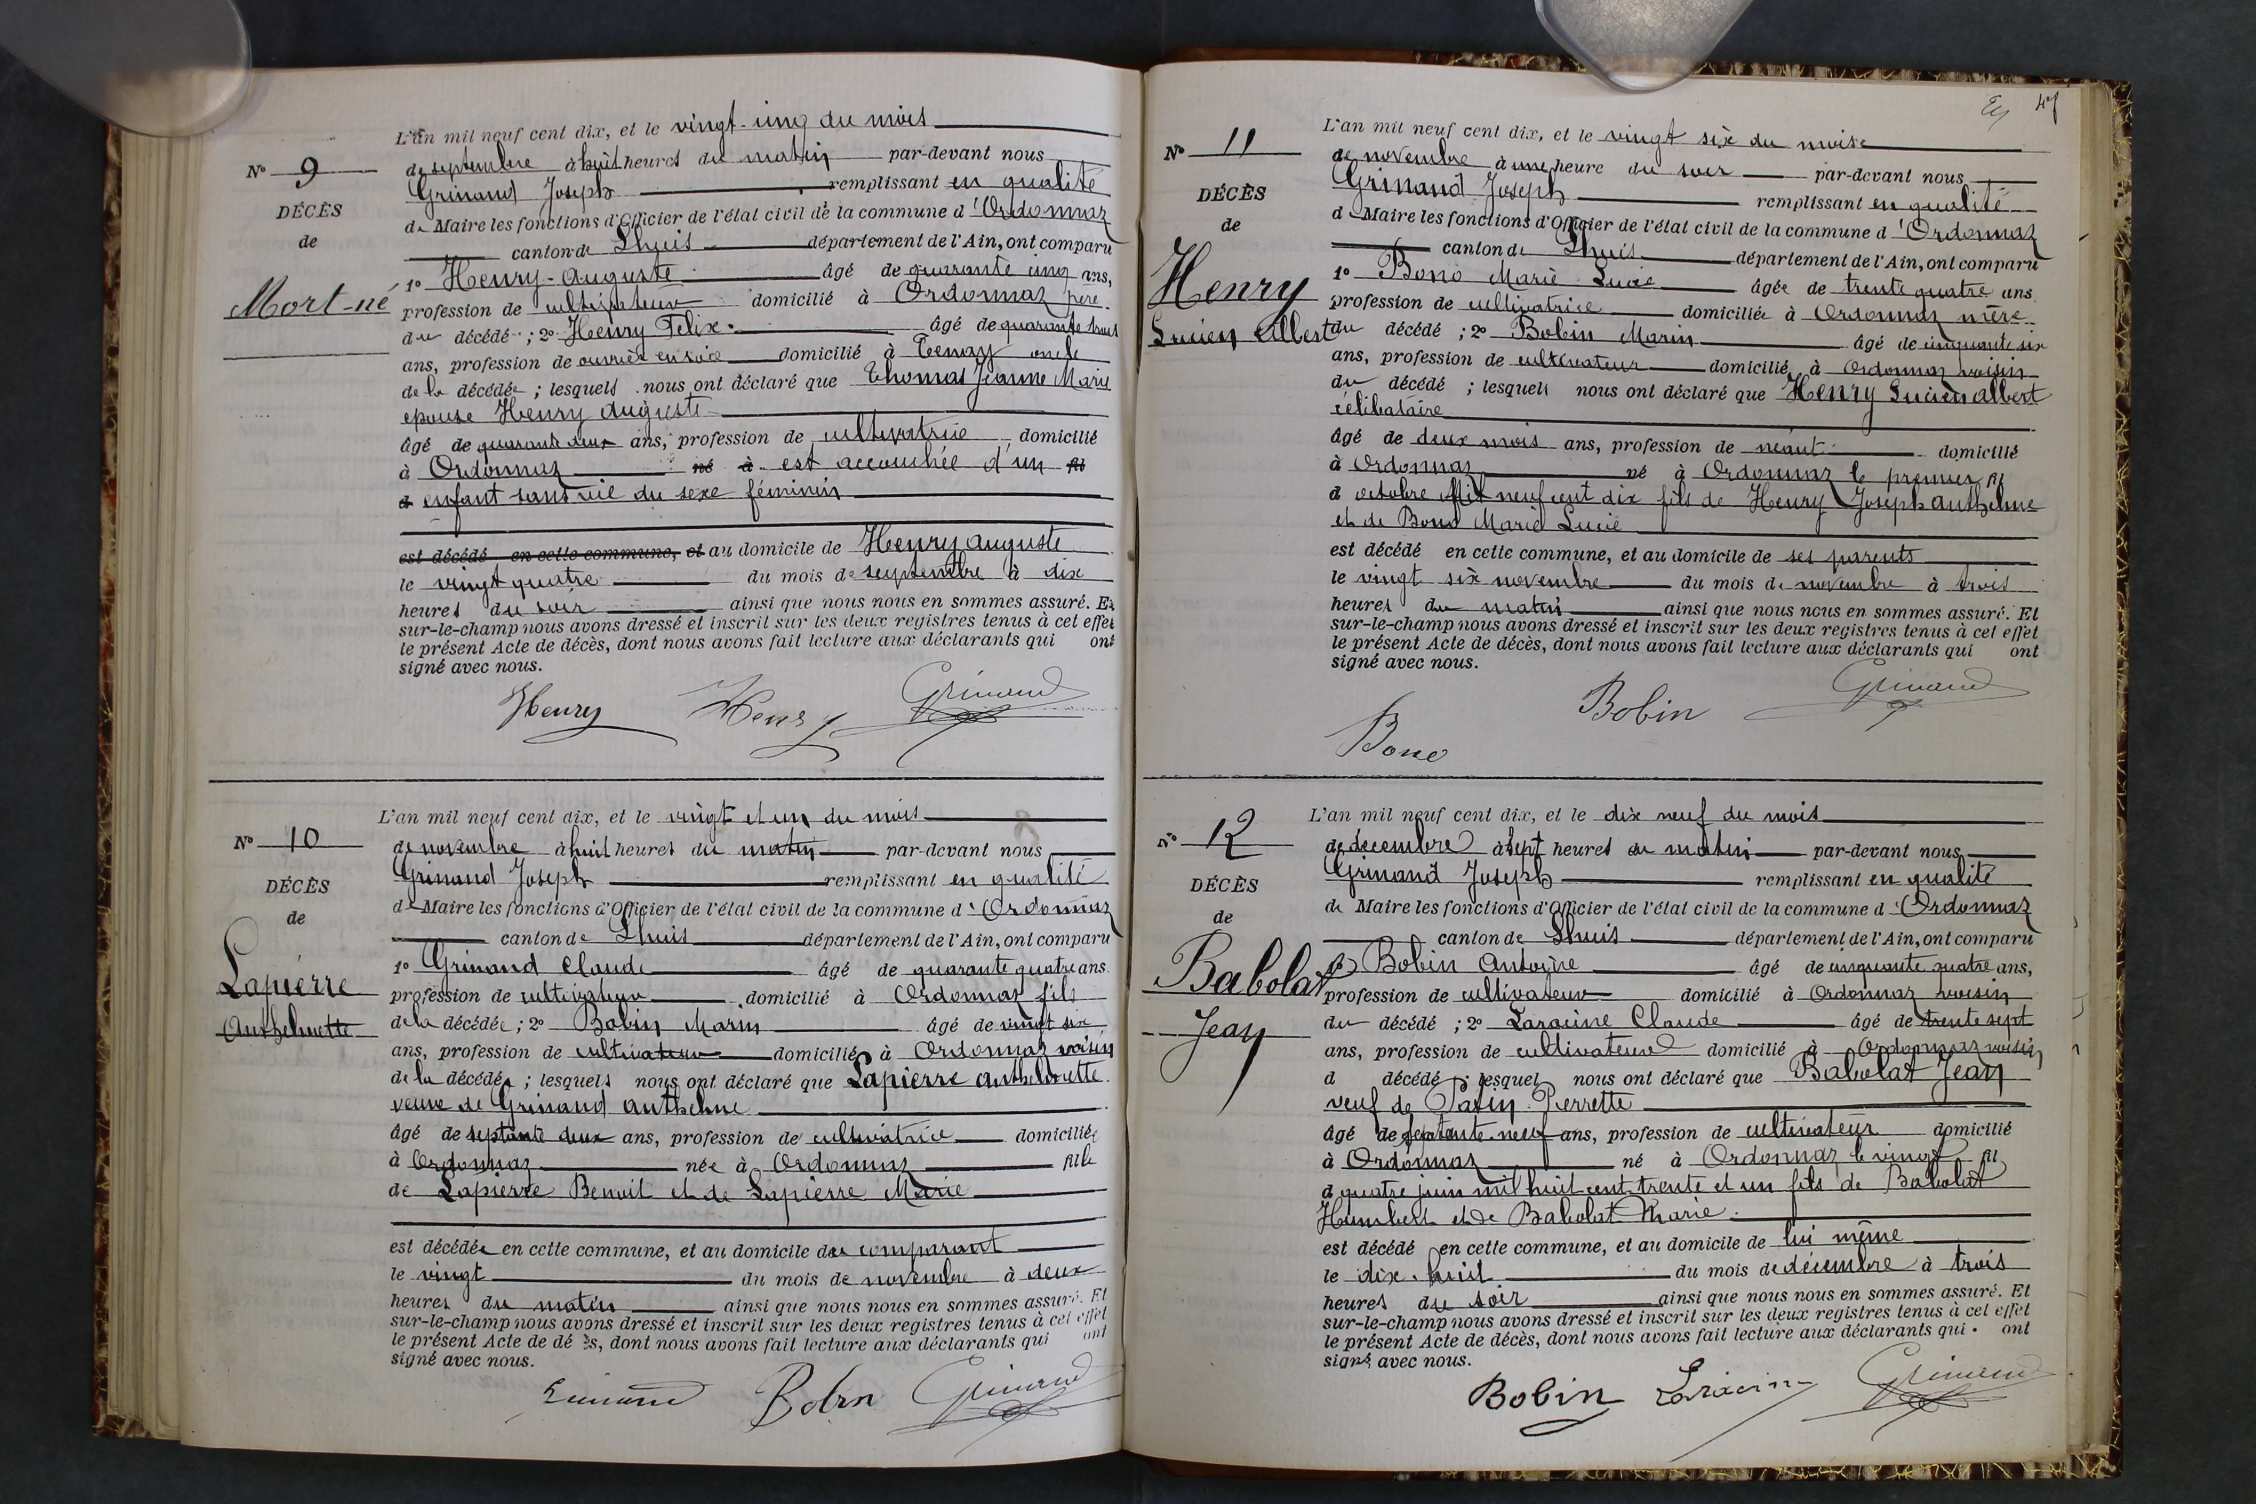 L'an mil neuf cent dix, et le vingt-cinq du mois
No 9
de septembre à huit heures du matin par-devant nous
Grinand Joseph remplissant en qualité
DÉCÈS
de Maire les fonctions d'Officier de l'état civil de la commune d'Ordonnaz
de
canton de Lhuis département de l'Ain, ont comparu
Mort-né
1o Henry-Auguste âgé de quarante cinq ans,
profession de cultivateur domicilié à Ordonnaz père
du décédé ; 2o Henry Felix âgé de quarante trois
ans, profession de ouvrier en soie domicilié à Tenay oncle
de la décédée ; lesquels nous ont déclaré que Thomas Jeanne Marie
epouse Henry Auguste
âgé de quarante deux ans, profession de cultivatrice domicilié
à Ordonnaz né à est accouchée d'un fil
d enfant sans vie du sexe féminin
est décédé en cette commune, et au domicile de Henry Auguste
le vingt quatre du mois de septembre à dix
heures du soir ainsi que nous nous en sommes assuré. Et
sur-le-champ nous avons dressé et inscrit sur les deux registres tenus à cet effet
le présent Acte de décès, dont nous avons fait lecture aux déclarants qui ont
signé avec nous.
Henry Henry Grinand
L'an mil neuf cent dix, et le vingt et un du mois
No 10
de novembre à huit heures du matin par-devant nous
Grinand Joseph remplissant en qualité
DÉCÈS
de Maire les fonctions d'Officier de l'état civil de la commune d'Ordonnaz
de
canton de Lhuis département de l'Ain, ont comparu
Lapierre
Anthelmette
1o Grinand Claude âgé de quarante quatre ans.
profession de cultivateur domicilié à Ordonnaz fils
de la décédée ; 2o Bobin Marin âgé de vingt six
ans, profession de cultivateur domicilié à Ordonnaz voisin
de la décédée ; lesquels nous ont déclaré que Lapierre Anthelmette
veuve de Grinand Anthelme
âgé de septante deux ans, profession de cultivatrice domiciliée
à Ordonnaz née à Ordonnaz fille
de Lapierre Benoit et de Lapierre Marie
est décédée en cette commune, et au domicile du comparant
le vingt du mois de novembre à deux
heures du matin ainsi que nous nous en sommes assuré. Et
sur-le-champ nous avons dressé et inscrit sur les deux registres tenus à cet effet
le présent Acte de dé ès, dont nous avons fait lecture aux déclarants qui ont
signé avec nous.
Grinand Bobin Grinand
47
L'an mil neuf cent dix, et le vingt six du mois
No 11
de novembre à une heure du soir par-devant nous
Grinand Joseph remplissant en qualité
DÉCÈS
de Maire les fonctions d'Officier de l'état civil de la commune d'Ordonnaz
de
canton de Lhuis département de l'Ain, ont comparu
Henry
Lucien Albert
1o Bono Marie Lucie âgée de trente quatre ans
profession de cultivatrice domiciliée à Ordonnaz mère
du décédé ; 2o Bobin Marin âgé de cinquante six
ans, profession de cultivateur domicilié à Ordonnaz voisin
du décédé ; lesquels nous ont déclaré que Henry Lucien Albert
célibataire
âgé de deux mois ans, profession de néant domicilié
à Ordonnaz né à Ordonnaz le premier fil
d octobre Mil neuf cent dix fils de Henry Joseph Anthelme
et de Bono Marie Lucie
est décédé en cette commune, et au domicile de ses parents
le vingt six novembre du mois de novembre à trois
heures du matin ainsi que nous nous en sommes assuré. Et
sur-le-champ nous avons dressé et inscrit sur les deux registres tenus à cet effet
le présent Acte de décès, dont nous avons fait lecture aux déclarants qui ont
signé avec nous.
Bono Bobin Grinand
L'an mil neuf cent dix, et le dix neuf du mois
No 12
de decembre à sept heures du matin par-devant nous
Grinand Joseph remplissant en qualité
DÉCÈS
de Maire les fonctions d'Officier de l'état civil de la commune d'Ordonnaz
de
canton de Lhuis département de l'Ain, ont comparu
Babolat
Jean
1o Bobin Antoine âgé de cinquante quatre ans,
profession de cultivateur domicilié à Ordonnaz voisin
du décédé ; 2o Laracine Claude âgé de trente sept
ans, profession de cultivateur domicilié à Ordonnaz voisin
d décédé ; lesquel nous ont déclaré que Babolat Jean
veuf de Pavin Pierrette
âgé de septante-neuf ans, profession de cultivateur domicilié
à Ordonnaz né à Ordonnaz le vingt fil
d quatre juin mil huit cent trente et un fils de Babolat
Humbert et de Babolat Marie
est décédé en cette commune, et au domicile de lui même
le dix-huit du mois de décembre à trois
heures du soir ainsi que nous nous en sommes assuré. Et
sur-le-champ nous avons dressé et inscrit sur les deux registres tenus à cet effet
le présent Acte de décès, dont nous avons fait lecture aux déclarants qui ont
signé avec nous.
Bobin Laracine Grinand